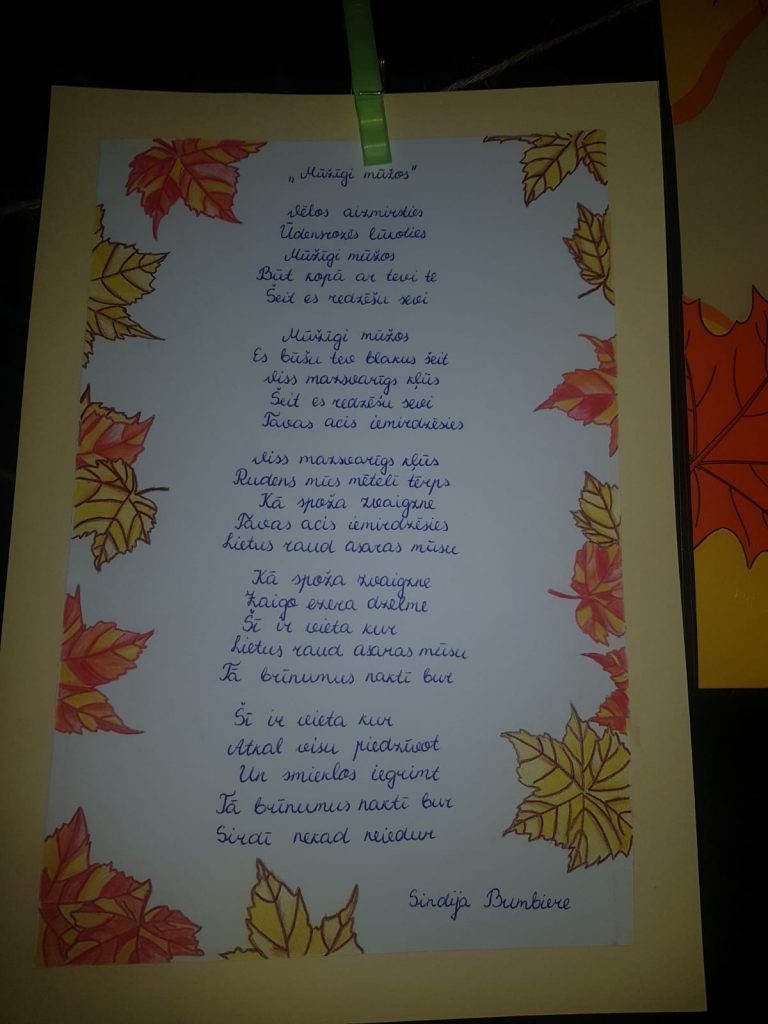 „Mūžīgi mūžos"
Vēlos aizmirsties
Ūdensrozēs lūkoties
Mūžīgi mūžos
Būt kopā ar tevi te
Šeit es redzēšu sevi
Mūžīgi mūžos
Es būšu tev blakus šeit
Viss mazsvarīgs kļūs
Šeit es redzēšu sevi
Tavas acis iemirdzēsies
Viss mazsvarīgs kļūs
Rudens mūs mētelī tērps
Kā spoža zvaigzne
Tavas acis iemirdzēsies
Lietus raud asaras mūsu
Kā spoža zvaigzne
Zaigo ezera dzelme
Šī ir vieta kur
Lietus raud asaras mūsu
Tā brīnumus naktī bur
Šī ir vieta kur
Atkal visu piedzīvot
Un smieklos iegrimt
Tā brīnumus naktī bur
Sirdī nekad neiedur
Sindija Bumbiere